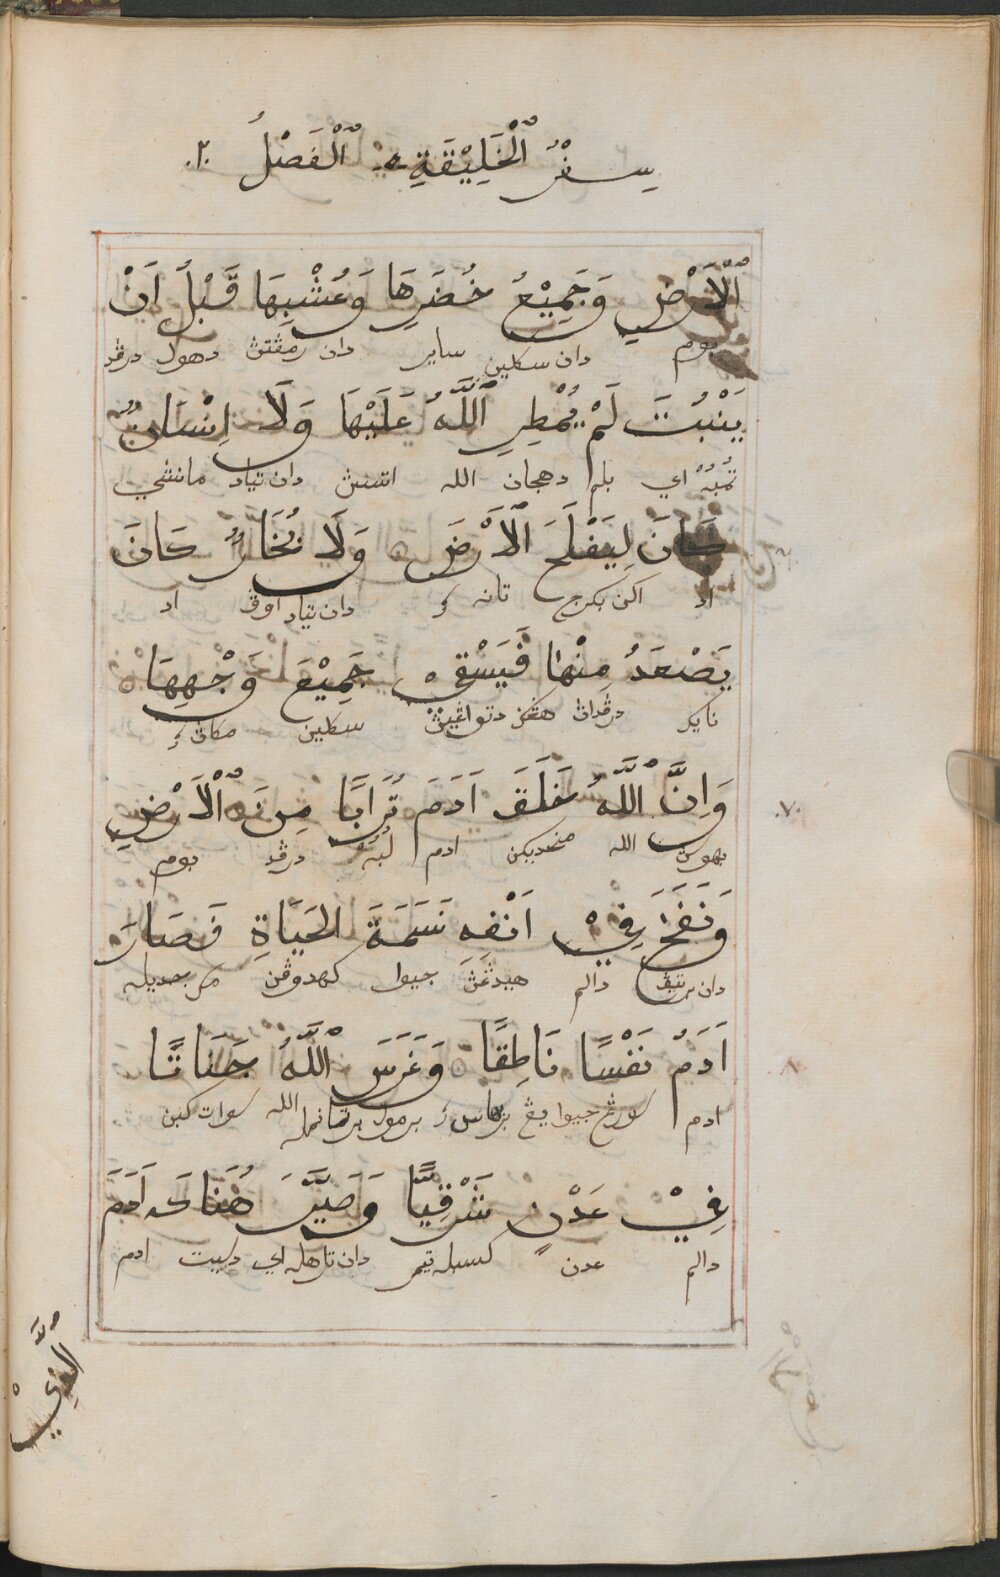 سِفْرُ ٱلْخَلِيْقَةِ ۞ ٱلْفَصْلُ ٢.
ٱلْاَرْضِ وَجَمِيْعُ خُضَرِهَا وَعُشْبِهَا قَبْلَ اَنْ
بوم دان سكلين ساير دان رمڤتڽ دهول درڤد
يَنْبُتَ لَمْ يُمْطِرِ ٱللّٰهُ عَلَيْهَا وَلَا اِنْسَانٌ
تمبه اي بلم دهجان الله اتسڽ دان تياد مانسي
كَانَ لِيَفْلَحَ ٱلْاَرْضَ وَلَا بُخَارٌ كَانَ
اد اكن بكرج تانه دان تياد اوڤ اد
يَصْعَدُ مِنْهَا فَيَسْقِيْ جَمِيْعَ وَجْهِهَا
نايك درڤداڽ هڠݢ سكلين مكاڽ
٧.
وَاِنَّ ٱللّٰهَ خَلَقَ اَدَمَ تُرَابًا مِنَ ٱلْاَرْضِ
بهوس الله منجديكن ادم لبو درڤد بوم
وَنَفَخَ فِيْ اَنْفِهِ نَسَمَةَ الْحَيَاةِ فَصَارَ
دان دالم هيدڠڽ جيوا كهدوڤن مك جديله
٨
اَدَمُ نَفْسًا نَاطِقًا وَغَرَسَ ٱللّٰهُ جَنَانًا
ادم سورڠ جيوا يڠ الله سوات كبن
فِيْ عَدْنٍ شَرْقِيًّا وَصَيَّرَ هُنَاكَ اَدَمَ
دالم عدن كسبله تيمر دان ادم
ٱلَّذِيْ